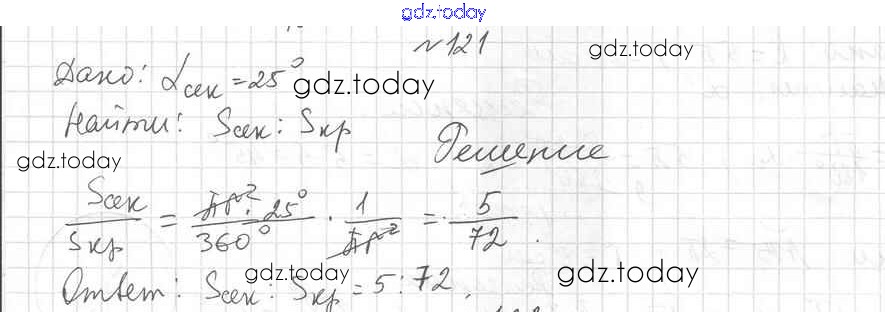 gdz.today
№121
gdz.today
Дано: αсек = 25°
gdz.today
Найти: Sсек : Sкр
Решение
gdz.today
Sсек/Sкр = πr²·25°/360° · 1/πr² = 5/72.
gdz.today
gdz.today
Ответ: Sсек : Sкр = 5:72.